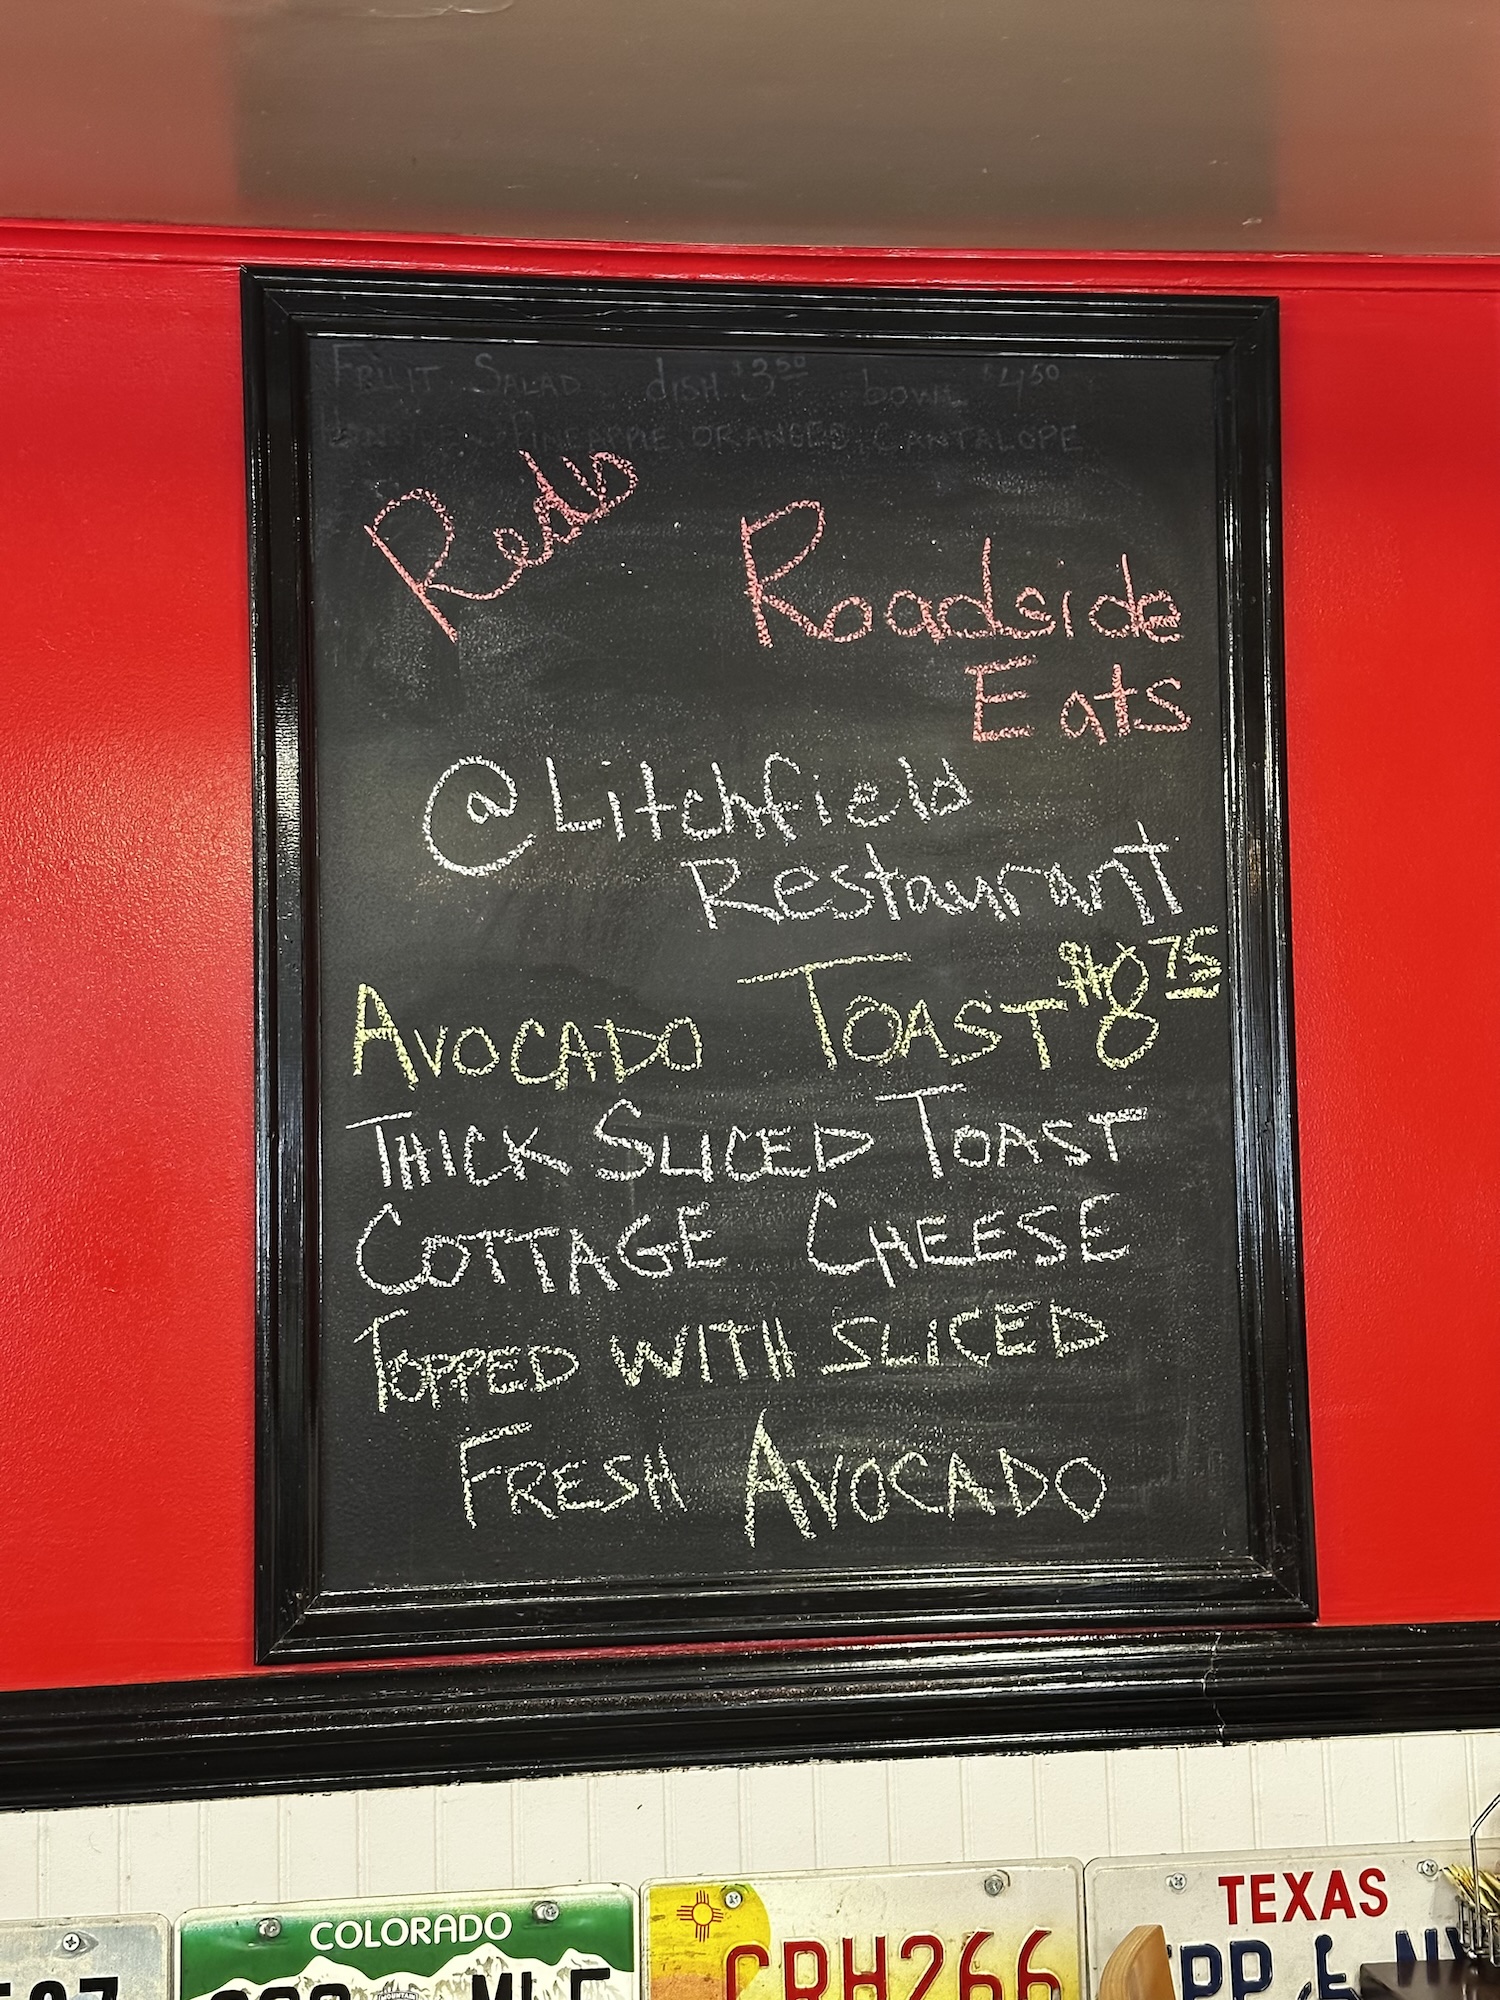 FRUIT SALAD dish $3.50 bowl $4.50
PINEAPPLE ORANGES, CANTALOPE
Reds
Roadside
Eats
@Litchfield
Restaurant
AVOCADO TOAST $8.75
THICK SLICED TOAST
COTTAGE CHEESE
TOPPED WITH SLICED
FRESH AVOCADO
COLORADO
CRH266
TEXAS